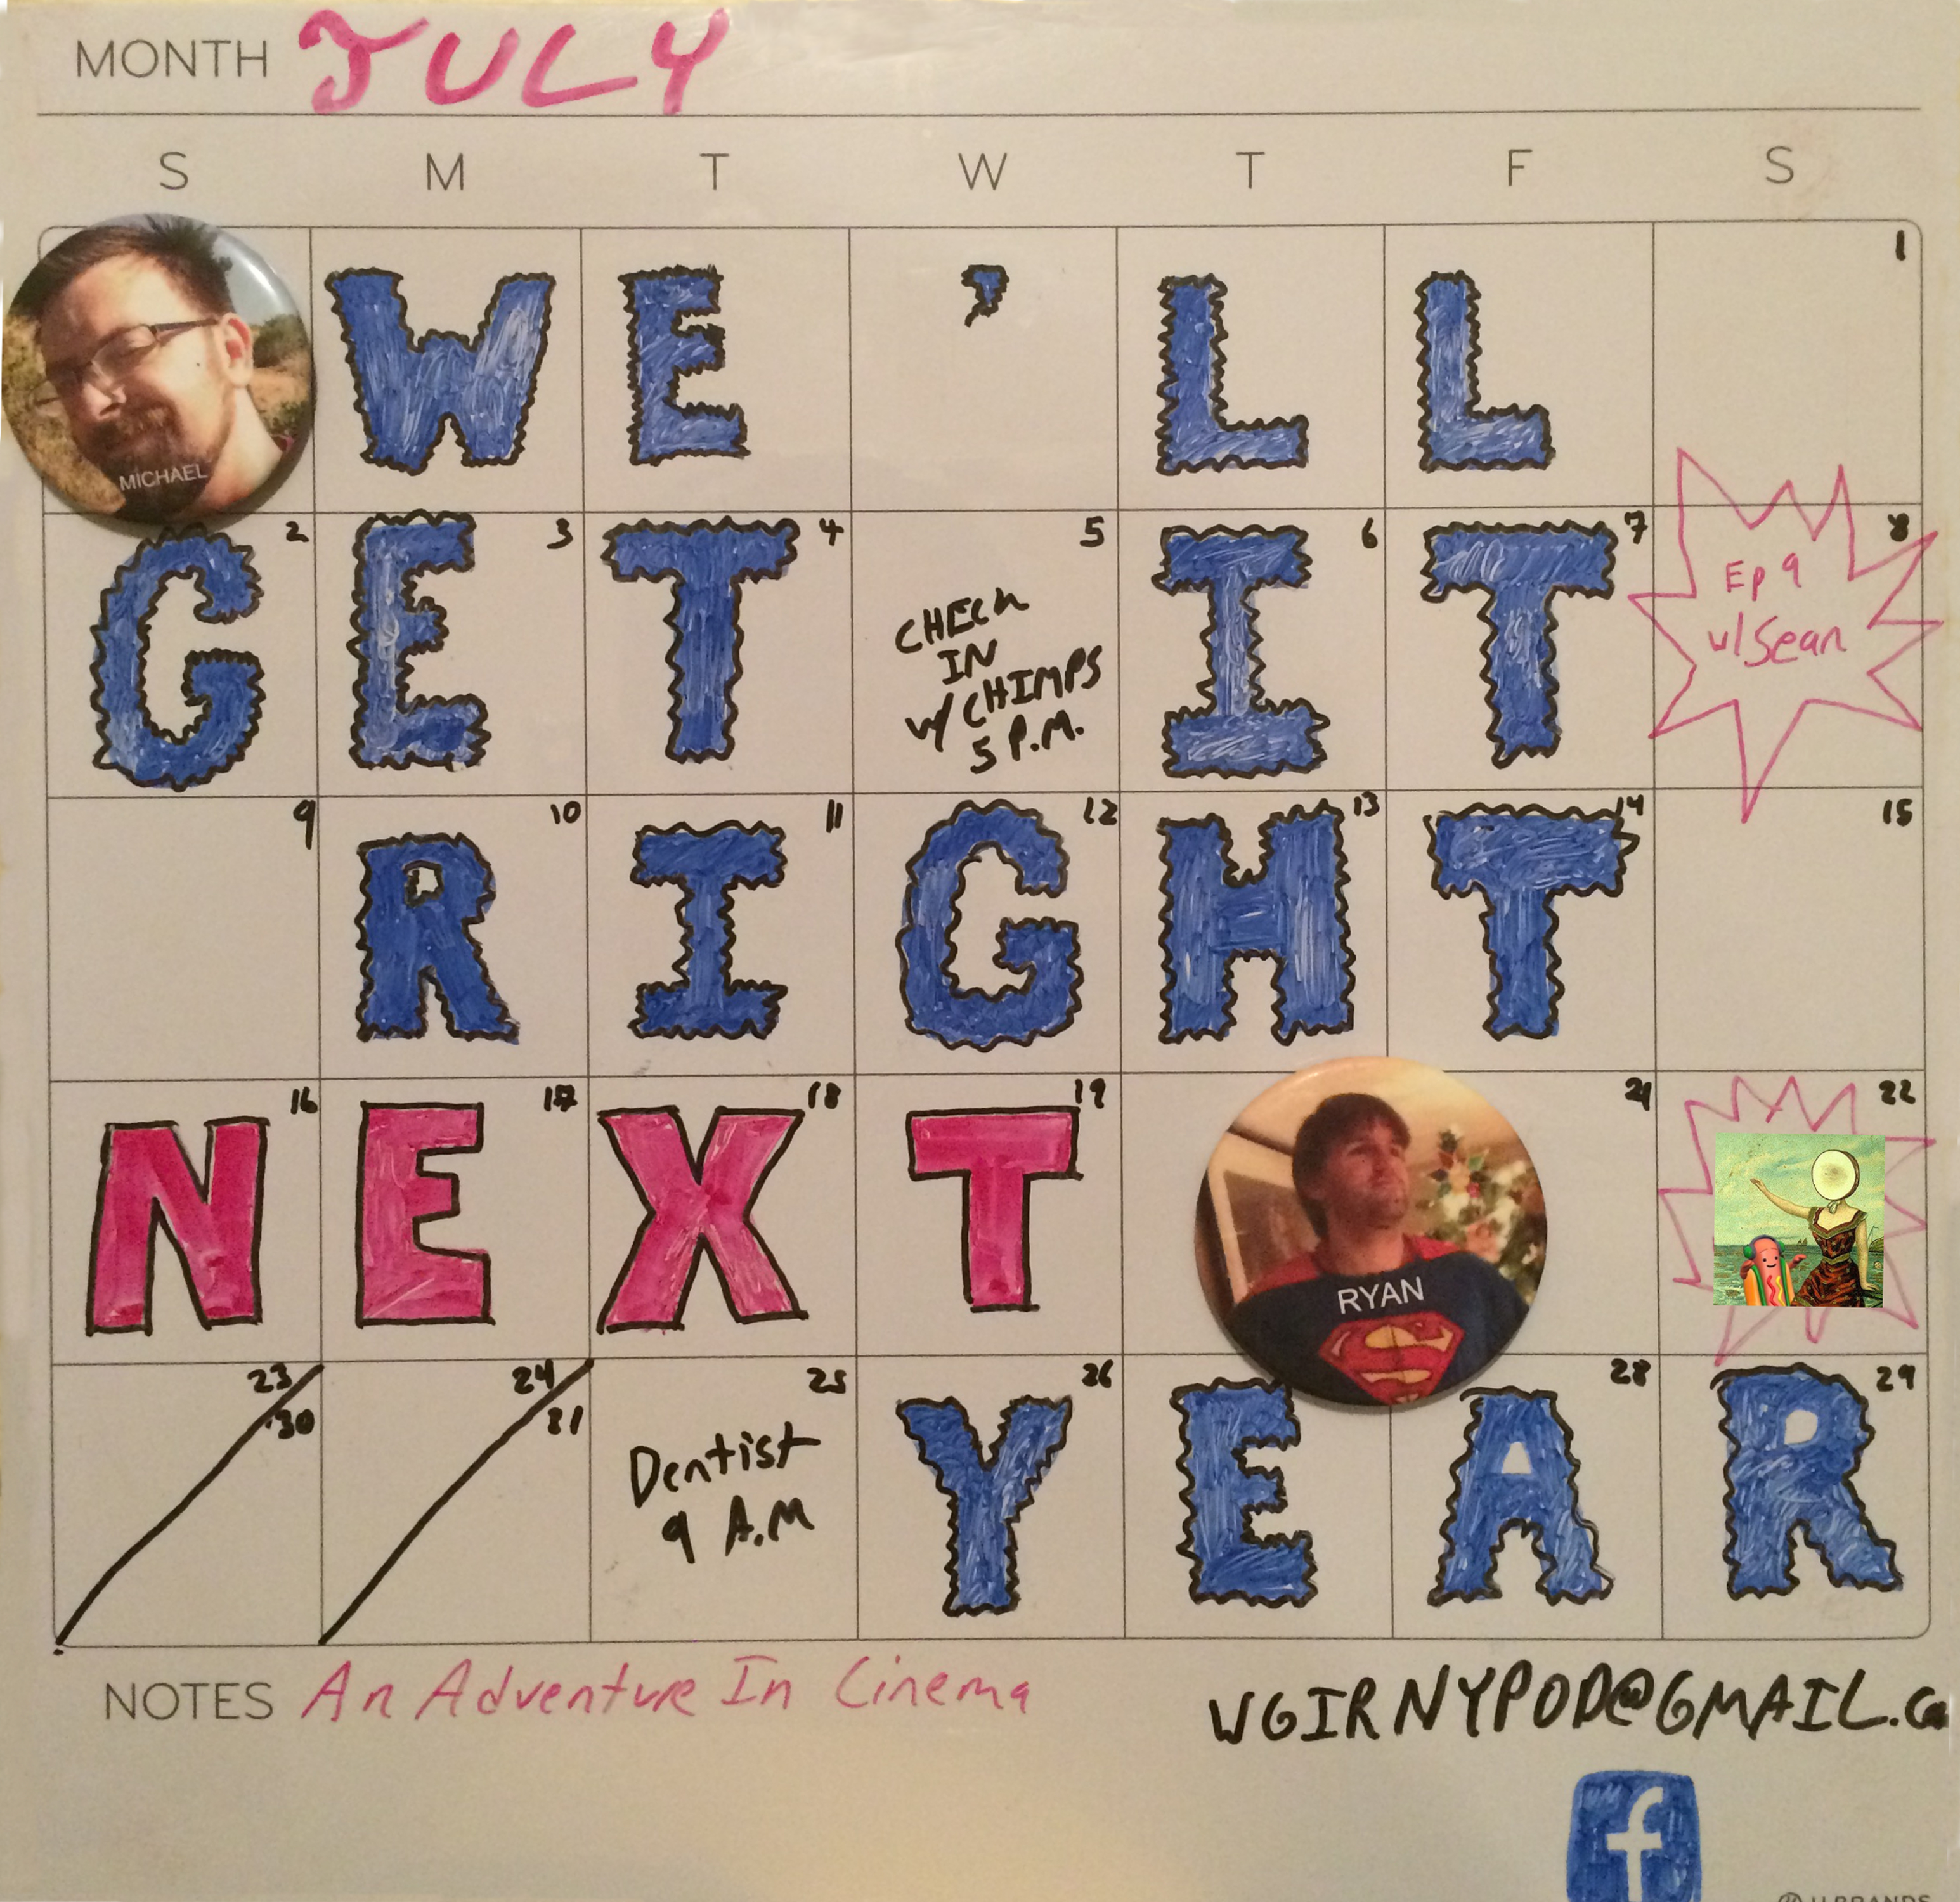 MONTH JULY
S M T W T F S
W E ' L L 1
MICHAEL
2 3 4 5 6 7 8
G E T I T
CHECK
IN
w/ CHIMPS
5 P.M.
Ep 9
w/ Sean
9 10 11 12 13 14 15
R I G H T
16 17 18 19 21 22
N E X T
RYAN
23 24 25 26 28 29
30 31
Dentist
9 A.M
Y E A R
NOTES An Adventure In Cinema
WGIRNYPOD@GMAIL.Co
f
U BRANDS